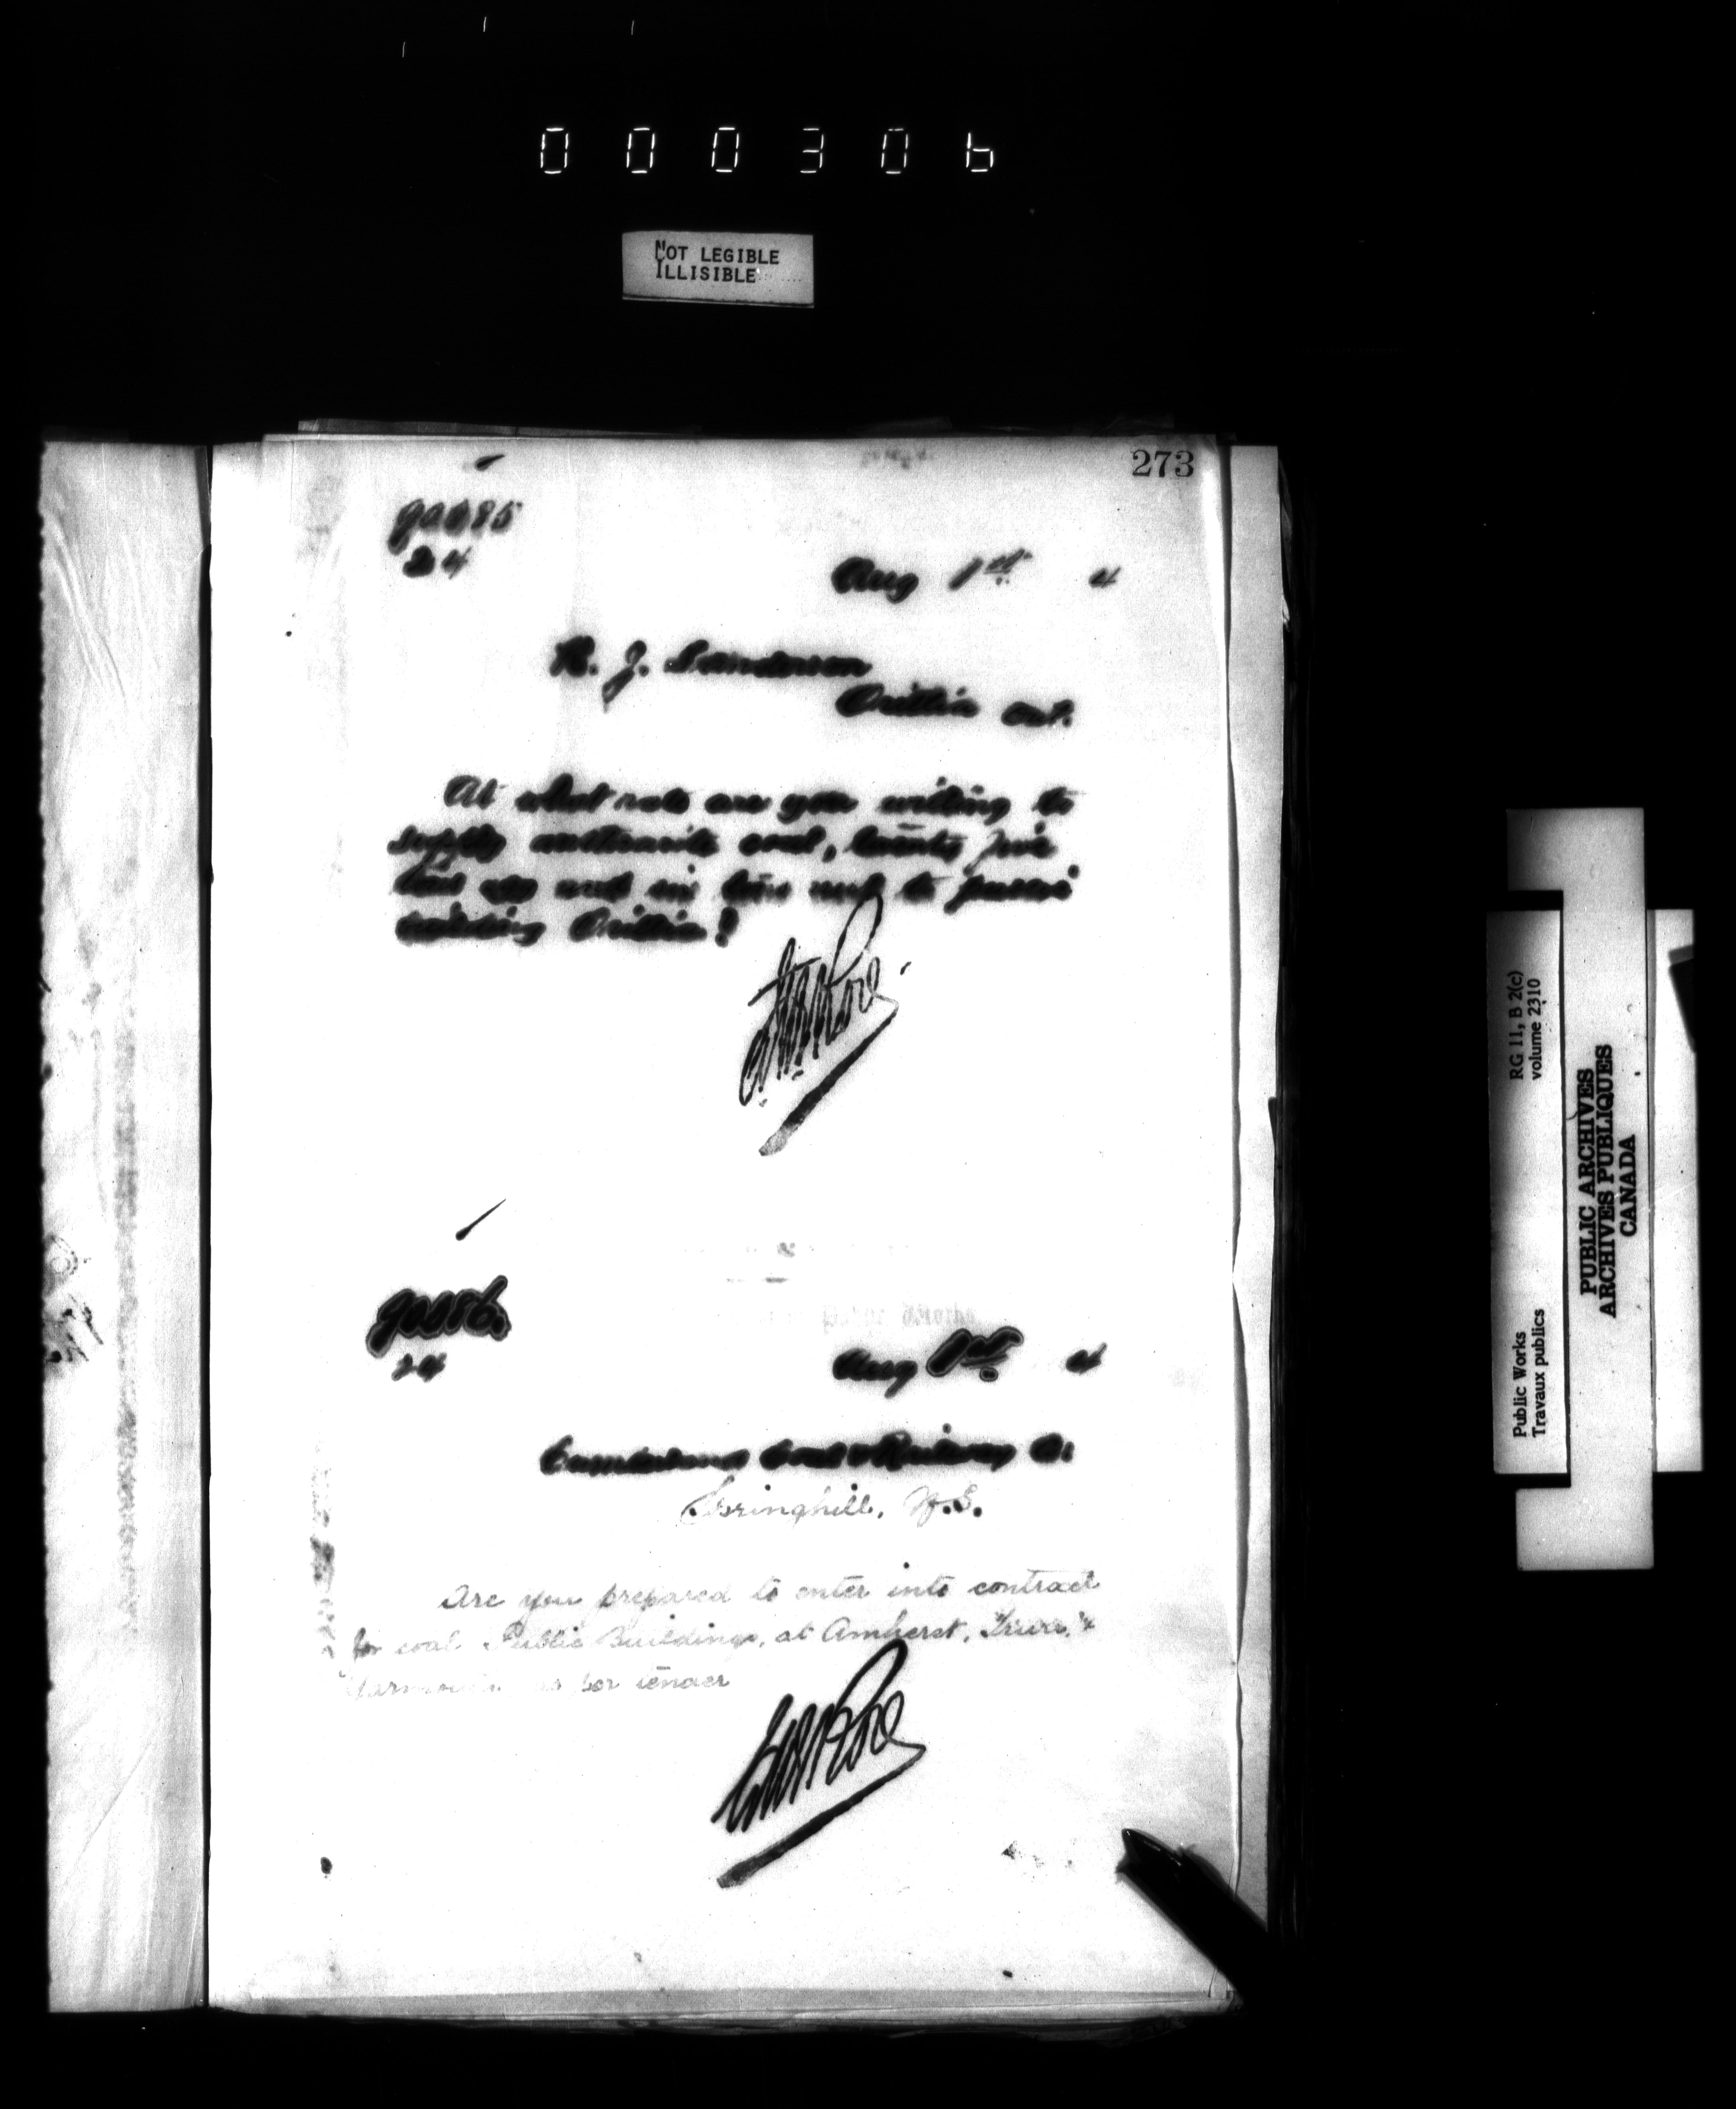 000306
NOT LEGIBLE
ILLISIBLE
273
24
Aug 1st 4
R. J. Sanderson
Orillia Ont.
At what rate are you willing to
supply anthracite coal, twenty five
tons egg and six tons nut to public
building Orillia?
24
Aug 1st 4
Cumberland Coal & Railway Co
Springhill, N.S.
Are you prepared to enter into contract
for coal Public Buildings, at Amherst, Truro, &
Yarmouth as per tender
RG 11, B 2(c)
volume 2310
Public Works
Travaux publics
PUBLIC ARCHIVES
ARCHIVES PUBLIQUES
CANADA